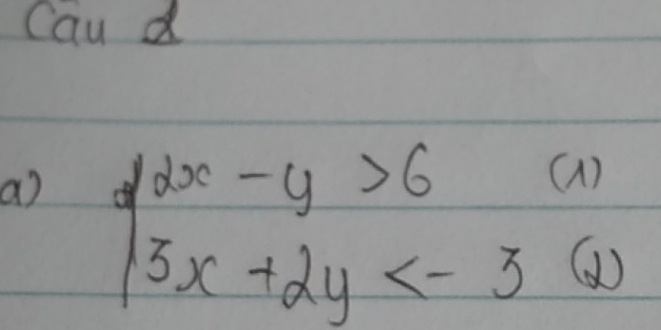 Câu 2
a) { 2x - y > 6 (1)
3x + 2y < - 3 (2)